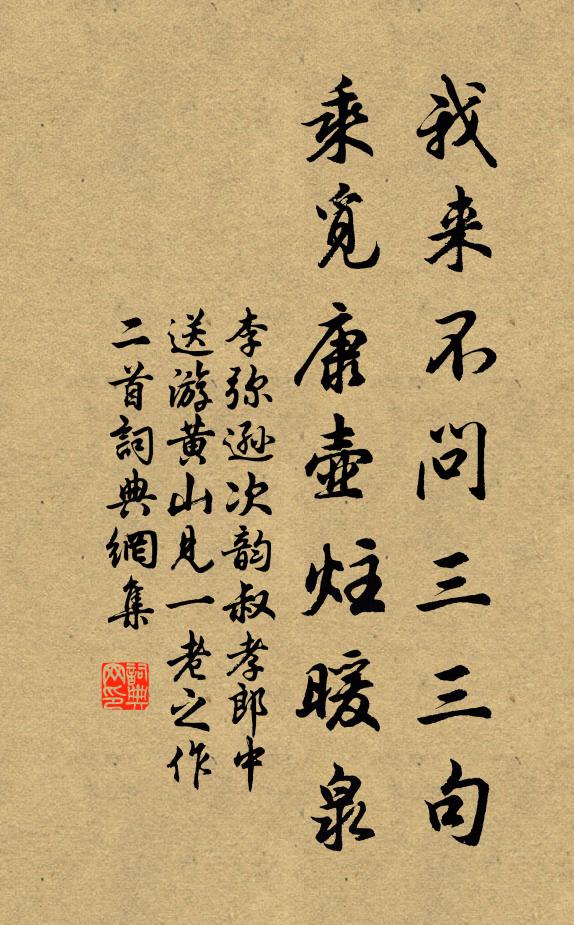 我来不问三三句
乘觅康壶炷暖泉
李弥逊次韵叔孝郎中
送游黄山见一老之作
二首詞典網集
詞典网印